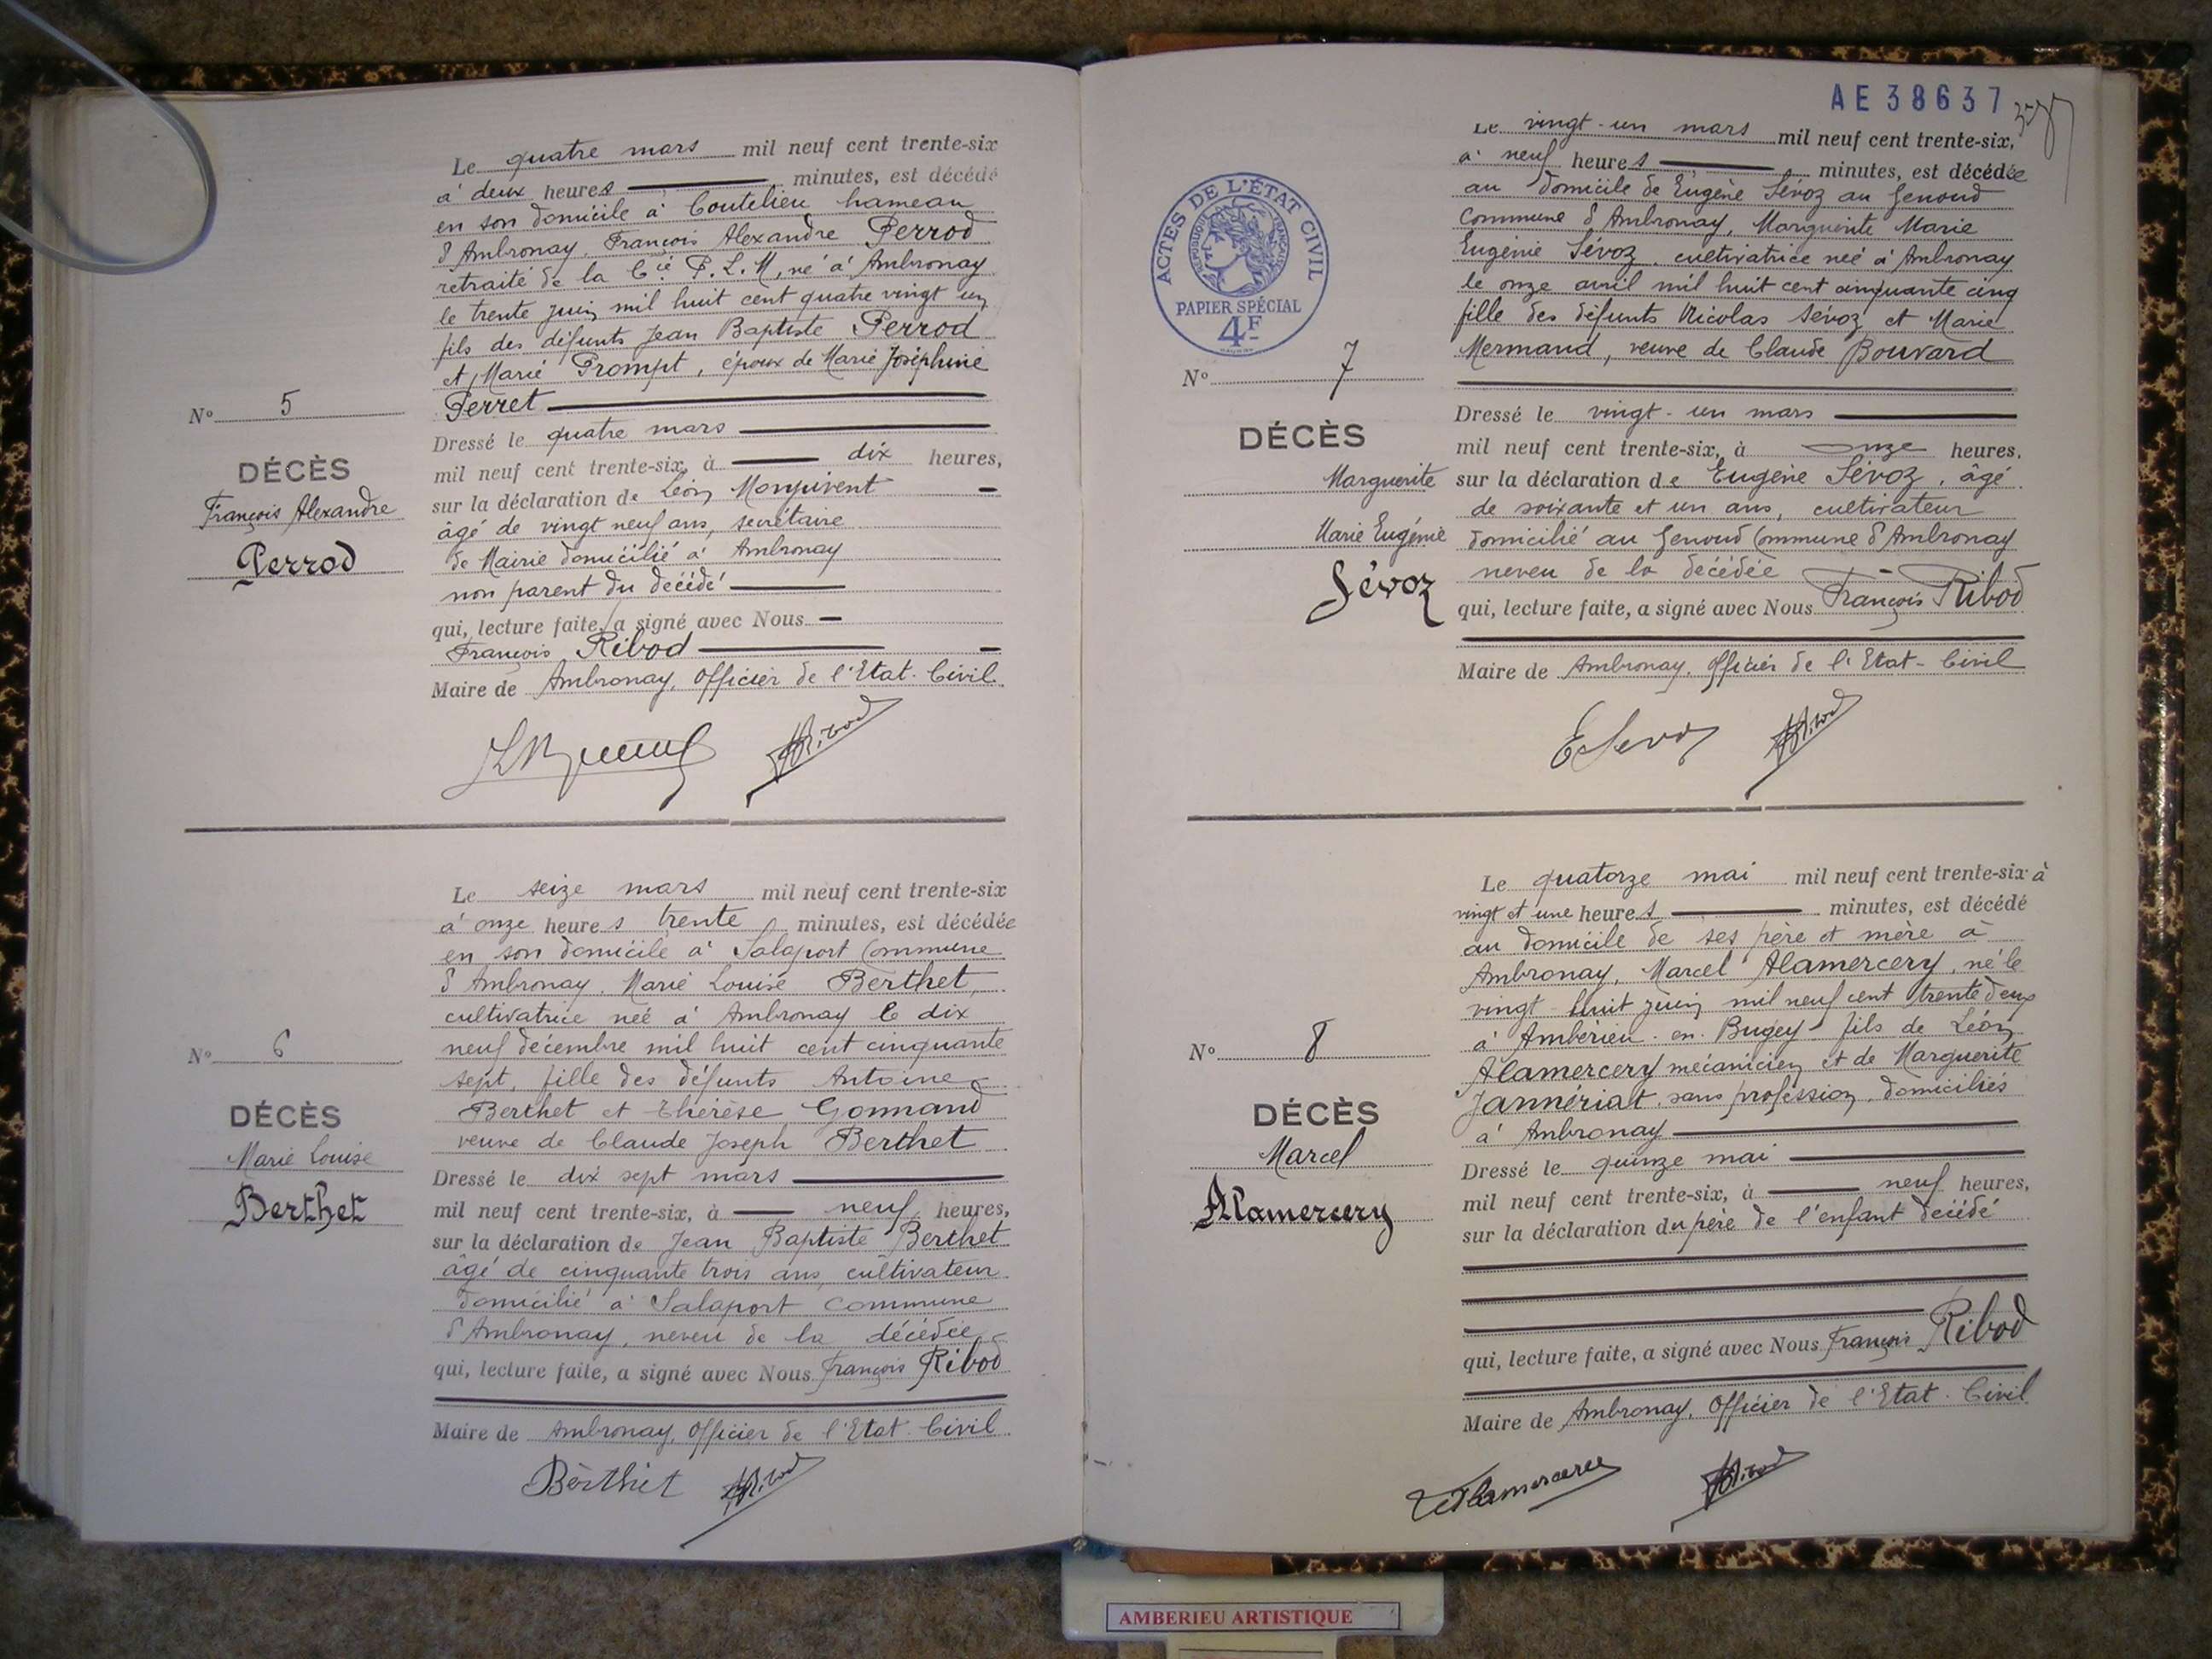 Le quatre mars mil neuf cent trente-six
à deux heures minutes, est décédé
en son domicile à Coutelieu hameau
d'Ambronay, François Alexandre Perrod
retraité de la Cie P.L.M, né à Ambronay
le trente juin mil huit cent quatre vingt un
fils des défunts Jean Baptiste Perrod
et Marie Prompt, époux de Marie Joséphine
Perret
Nº 5
DÉCÈS
François Alexandre
Perrod
Dressé le quatre mars
mil neuf cent trente-six, à dix heures,
sur la déclaration de Léon
âgé de vingt neuf ans, secrétaire
de Mairie domicilié à Ambronay
non parent du décédé
qui, lecture faite, a signé avec Nous
François Ribod
Maire de Ambronay, Officier de l'Etat-Civil.
Ribod
Le seize mars mil neuf cent trente-six
à onze heures trente minutes, est décédée
en son domicile à Salaport Commune
d'Ambronay, Marie Louise Berthet,
cultivatrice née à Ambronay le dix
neuf décembre mil huit cent cinquante
sept, fille des défunts Antoine
Berthet et Thérèse Gonnand
veuve de Claude Joseph Berthet
Nº 6
DÉCÈS
Marie Louise
Berthet
Dressé le dix sept mars
mil neuf cent trente-six, à neuf heures,
sur la déclaration de Jean Baptiste Berthet
âgé de cinquante trois ans, cultivateur
domicilié à Salaport Commune
d'Ambronay, neveu de la décédée
qui, lecture faite, a signé avec Nous François Ribod
Maire de Ambronay, Officier de l'Etat-Civil
Berthet Ribod
AE38637
ACTES DE L'ÉTAT CIVIL
RÉPUBLIQUE FRANÇAISE
PAPIER SPÉCIAL
4F
Le vingt-un mars mil neuf cent trente-six,
à neuf heures minutes, est décédée
au domicile de Eugène Sévoz au Genoud
Commune d'Ambronay, Marguerite Marie
Eugénie Sévoz, cultivatrice née à Ambronay
le onze avril mil huit cent cinquante cinq
fille des défunts Nicolas Sévoz et Marie
Mermand, veuve de Claude Bouvard
Nº 7
DÉCÈS
Marguerite
Marie Eugénie
Sévoz
Dressé le vingt-un mars
mil neuf cent trente-six, à onze heures.
sur la déclaration de Eugène Sévoz, âgé
de soixante et un ans, cultivateur
domicilié au Genoud Commune d'Ambronay
neveu de la décédée
qui, lecture faite, a signé avec Nous François Ribod
Maire de Ambronay, Officier de l'Etat-Civil
E Sevoz Ribod
Le quatorze mai mil neuf cent trente-six à
vingt et une heures minutes, est décédé
au domicile de ses père et mère à
Ambronay, Marcel Alamercery, né le
vingt-huit juin mil neuf cent trente deux
à Ambérieu-en-Bugey fils de Léon
Alamercery mécanicien et de Marguerite
Jannériat, sans profession, domiciliés
à Ambronay
Nº 8
DÉCÈS
Marcel
Alamercery
Dressé le quinze mai
mil neuf cent trente-six, à neuf heures,
sur la déclaration du père de l'enfant décédé
qui, lecture faite, a signé avec Nous François Ribod
Maire de Ambronay, Officier de l'Etat-Civil
Ribod
AMBERIEU ARTISTIQUE